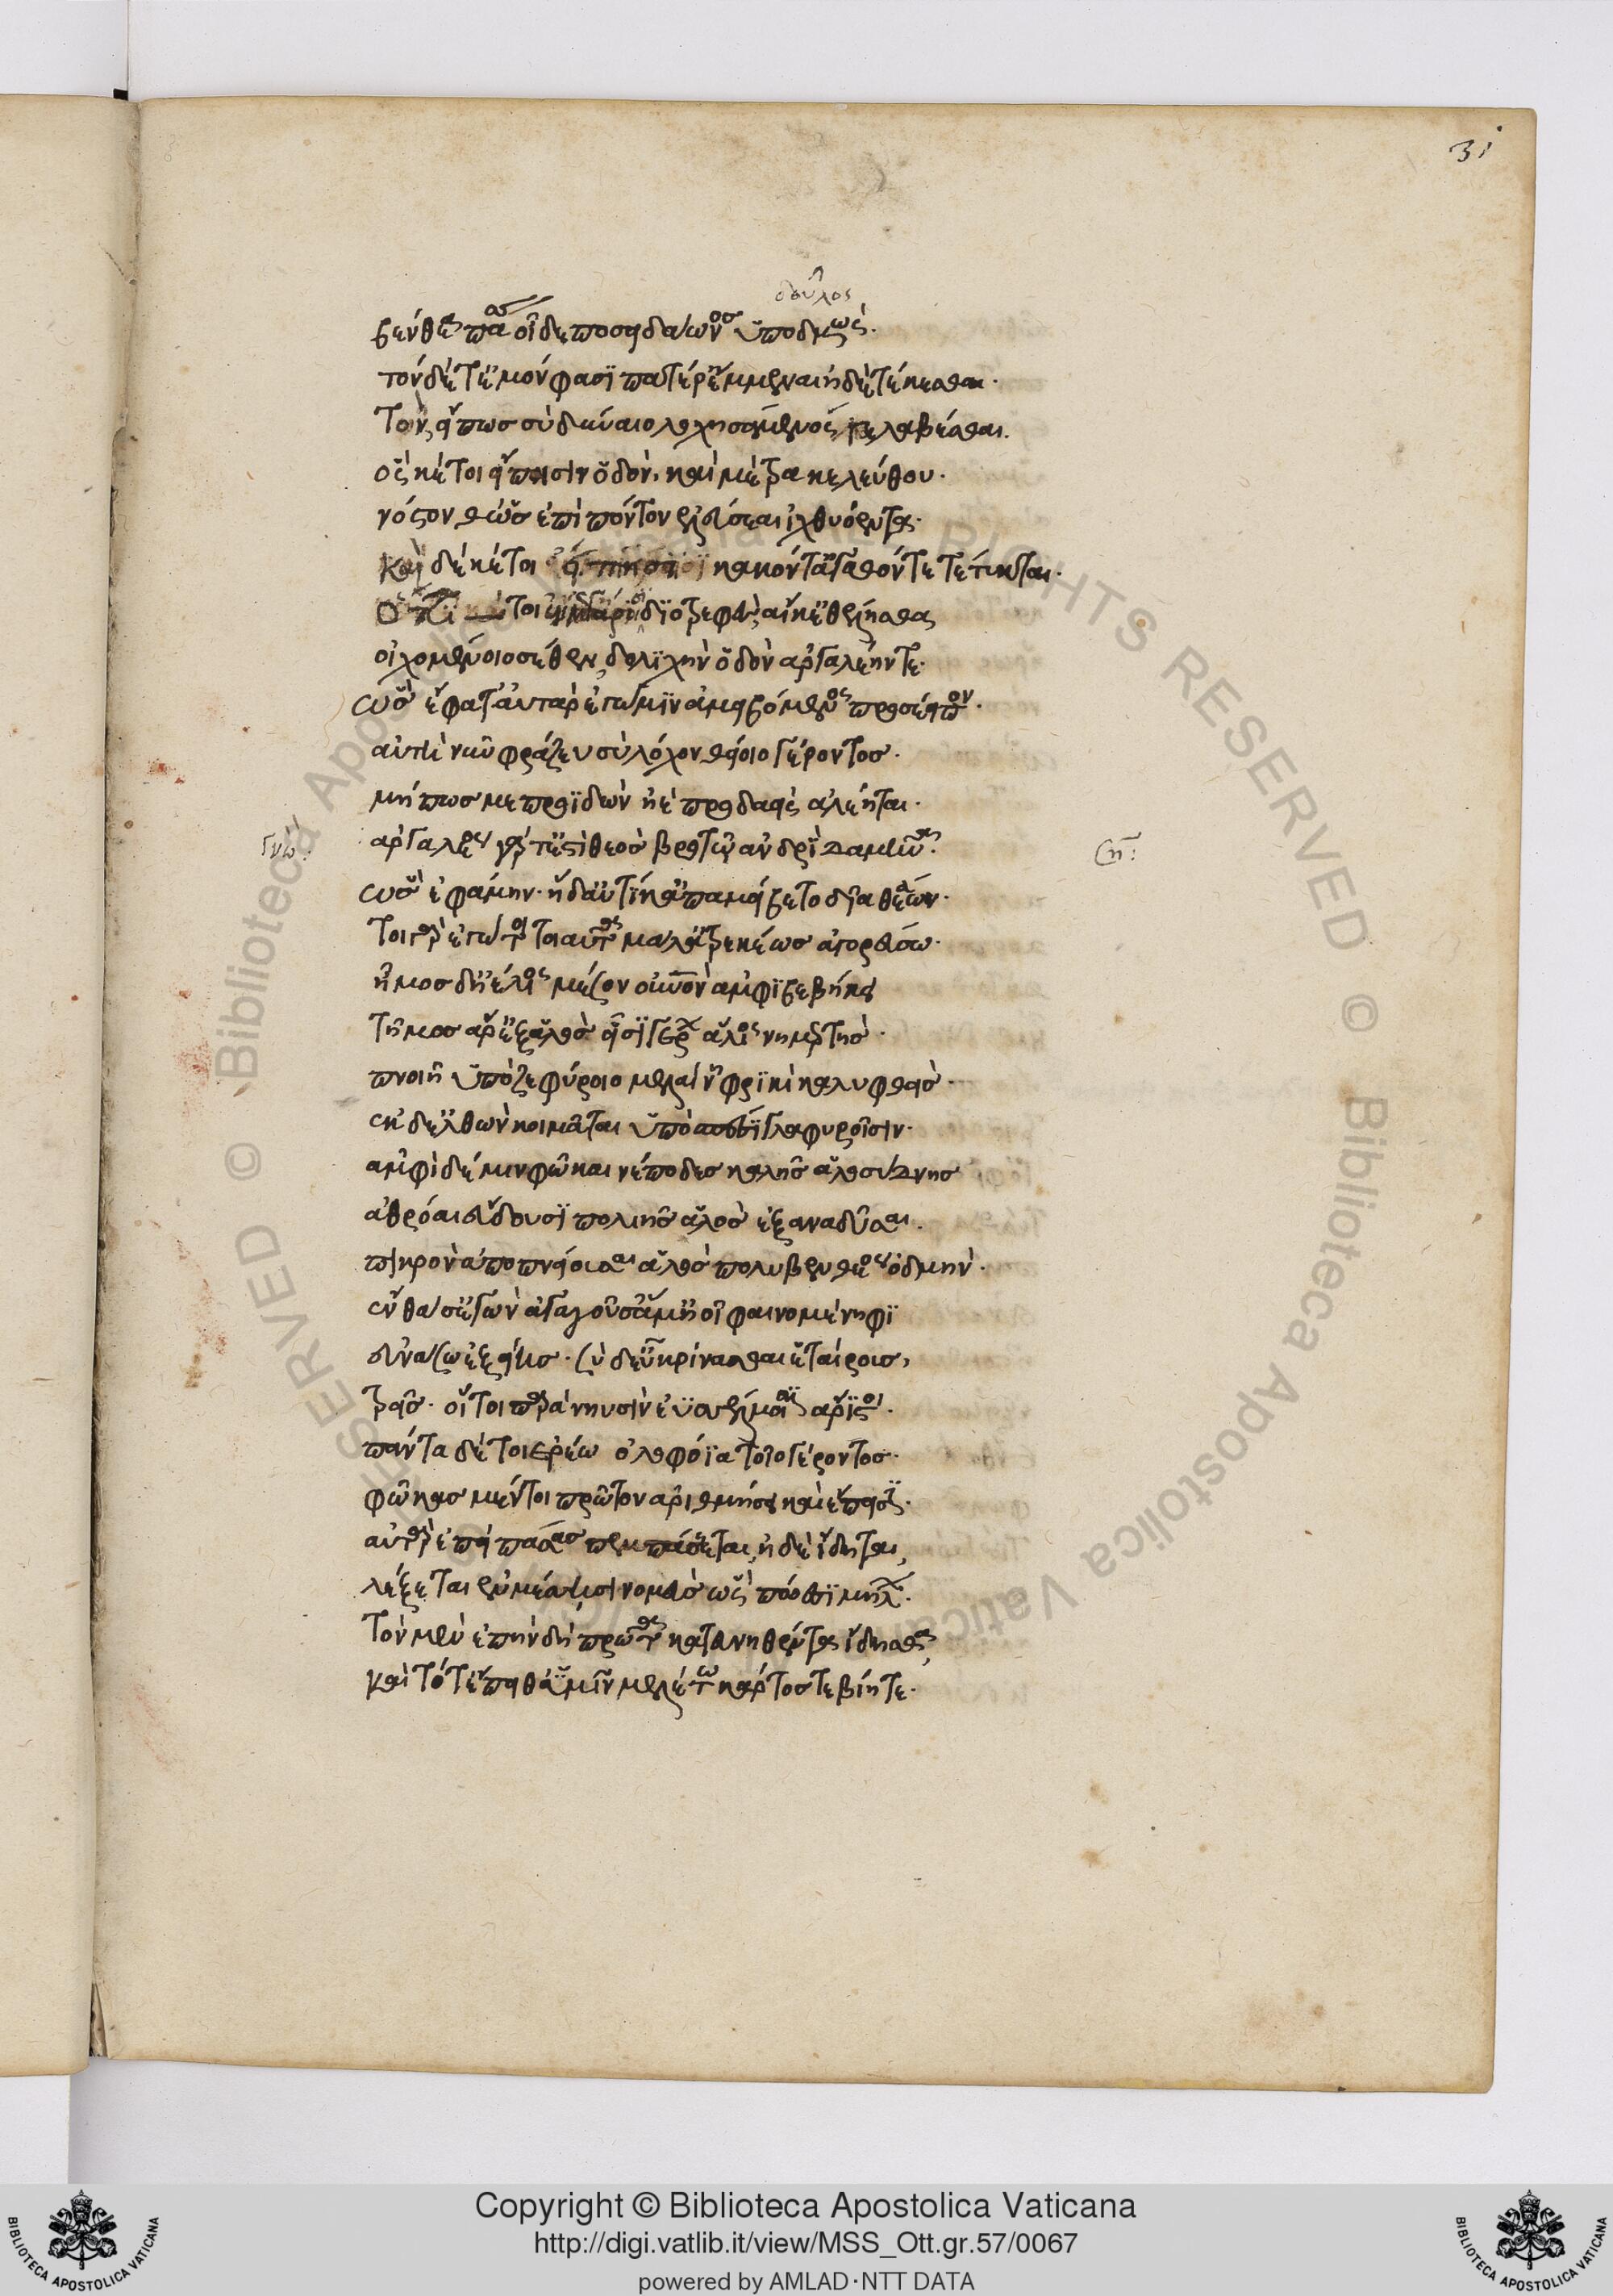 31
δοῦλος
βένθεα πάσης οἶδε ποσειδάωνος ὑποδμώς.
τόνδέ τ' ἐμόν φασὶ πατέρ' ἔμμεναι ἠδὲ τεκέσθαι.
τόν γ' εἴπως σὺ δύναιο λοχησάμενός γε λαβέσθαι.
ὅς κέ τοι εἴπησιν ὁδὸν, καὶ μέτρα κελεύθου.
νόστον θ' ὡς ἐπὶ πόντον ἐλεύσεαι ἰχθυόεντα.
καὶ δέ κέ τοι εἴπησι κακόν τ' ἀγαθόν τε τέτυκται.
ὅττι τοι ἐν μεγάροισι διοτρεφὲς αἴκ' ἐθέλησθα
οἰχομένοιο σέθεν, δολιχὴν ὁδὸν ἀργαλέην τε.
ὣς ἔφατ' αὐτὰρ ἐγώ μιν ἀμειβόμενος προσέειπον.
αὐτὴ νῦν φράζευ σὺ λόχον θείοιο γέροντος.
μήπως με προϊδὼν ἠὲ προδαεὶς ἀλέηται.
γνώ:
ἀργαλέος γάρ τ' ἐστὶ θεὸς βροτῷ ἀνδρὶ δαμῆναι.
ση:
ὣς ἐφάμην. ἡ δ' αὐτίκ' ἀπαμείβετο δῖα θεάων.
τοιγὰρ ἐγώ τοι ταῦτα μάλ' ἀτρεκέως ἀγορεύσω.
ἦμος δ' ἠέλιος μέσον οὐρανὸν ἀμφιβεβήκει
τῆμος ἄρ' ἐξ ἁλὸς εἶσι γέρων ἅλιος νημερτής.
πνοιῇ ὑπὸ ζεφύροιο μελαίνῃ φρικὶ καλυφθείς.
ἐκ δ' ἐλθὼν κοιμᾶται ὑπὸ σπέσσι γλαφυροῖσιν.
ἀμφὶ δέ μιν φῶκαι νέποδες καλῆς ἁλοσύδνης
ἀθρόαι εὕδουσι πολιῆς ἁλὸς ἐξαναδῦσαι.
πικρὸν ἀποπνείουσαι ἁλὸς πολυβενθέος ὀδμὴν.
ἔνθα σ' ἐγὼν ἀγαγοῦσα ἅμ' ἠοῖ φαινομένηφι
εὐνάσω ἑξείης. σὺ δ' εὖ κρίνασθαι ἑταίρους,
τρεῖς. οἵ τοι παρὰ νηυσὶν ἐϋσσέλμοισιν ἄριστοι.
πάντα δέ τοι ἐρέω ὀλοφώϊα τοῖο γέροντος.
φώκας μέν τοι πρῶτον ἀριθμήσει καὶ ἔπεισι.
αὐτὰρ ἐπεὶ πάσας πεμπάσσεται, ἠδὲ ἴδηται,
λέξεται ἐν μέσσησι νομεὺς ὣς πώεσι μήλων.
τὸν μὲν ἐπὴν δὴ πρῶτα κατευνηθέντα ἴδησθε,
καὶ τότ' ἔπειθ' ὑμῖν μελέτω κάρτος τε βίη τε.
Copyright © Biblioteca Apostolica Vaticana
http://digi.vatlib.it/view/MSS_Ott.gr.57/0067
powered by AMLAD·NTT DATA